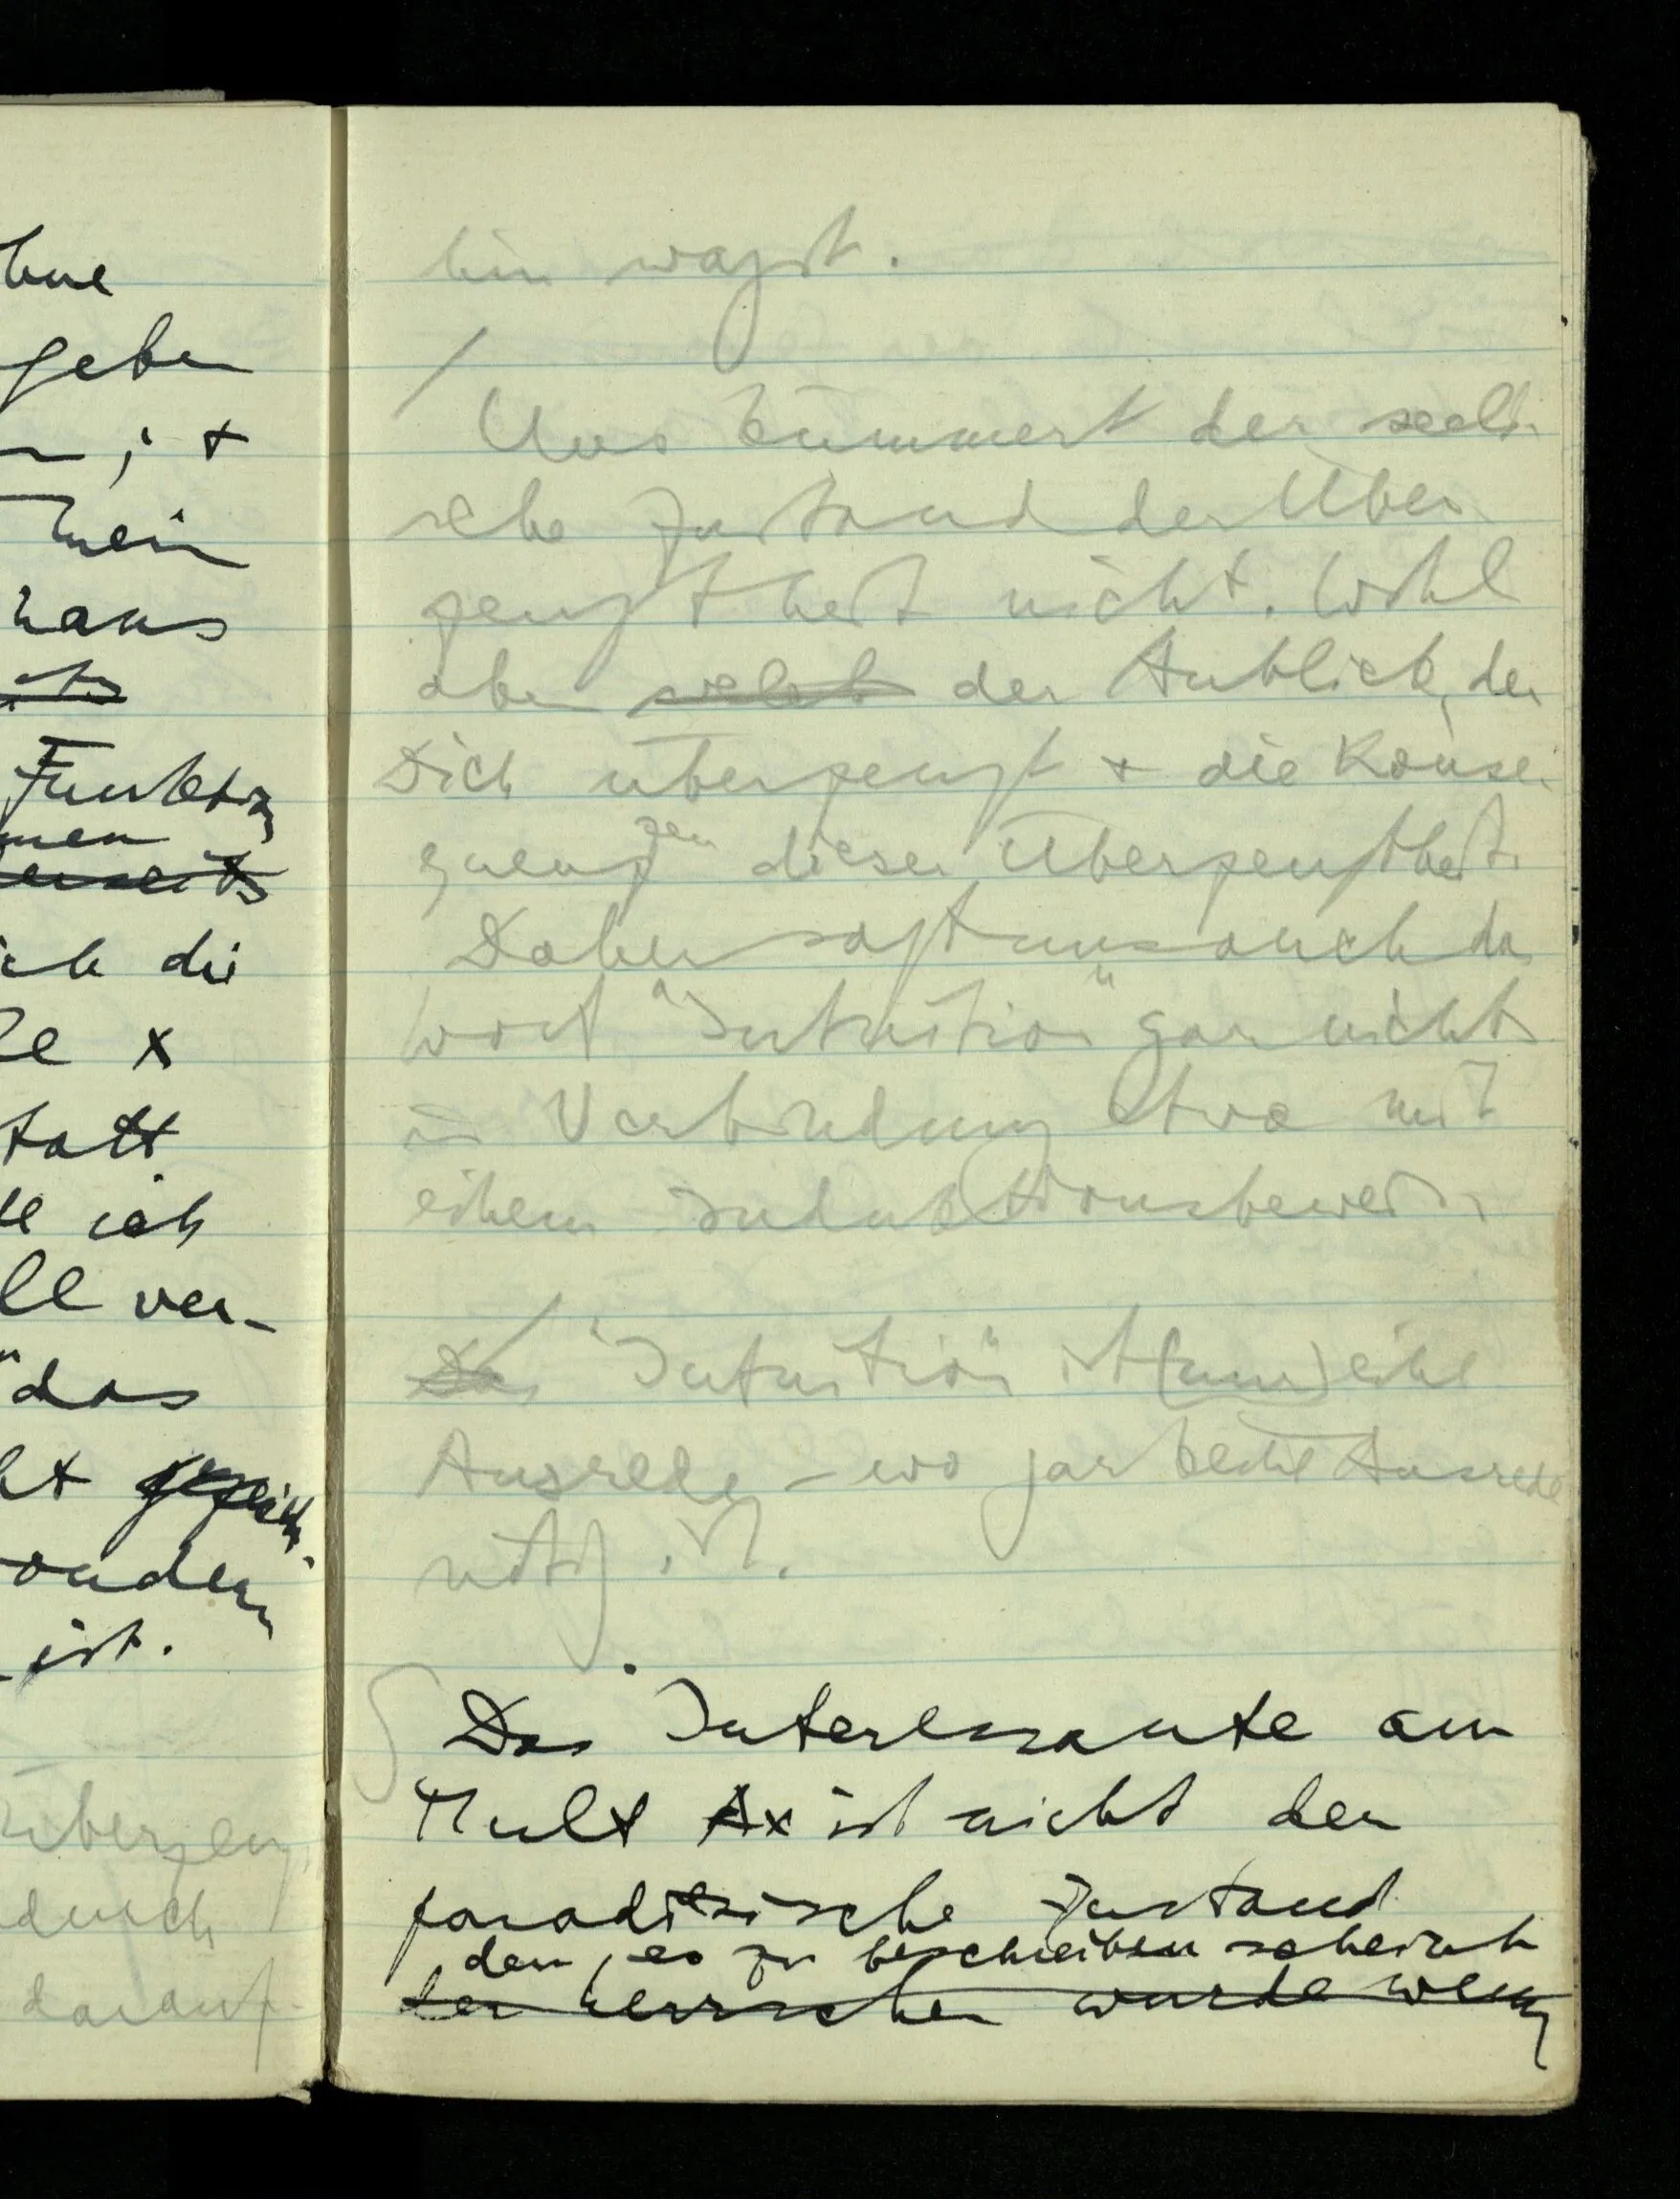 hne
geben
; +
mein
haus
Funktion
men
ich die
le x
tatt
te ich
ll ver-
" das
ht
ondern
ist.
überzeug
durch
darauf-
hin wagst.
/
Uns kümmert der seeli
sche Zustand der Über
zeugtheit nicht. Wohl
aber der Anblick, der
Dich überzeugt + die Konse
quenzen dieser Überzeugtheit.
Daher sagt uns auch das
Wort "Intuition" gar nichts
in Verbindung etwa mit
einem Induktionsbeweis.
Das "Intuition" ist (nur) eine
Ausrede – wo gar keine Ausrede
nötig ist.
Das Interessante am
Mult Ax ist nicht der
paradiesische Zustand
den es zu beschreiben scheint
der herrschen wurde wenn